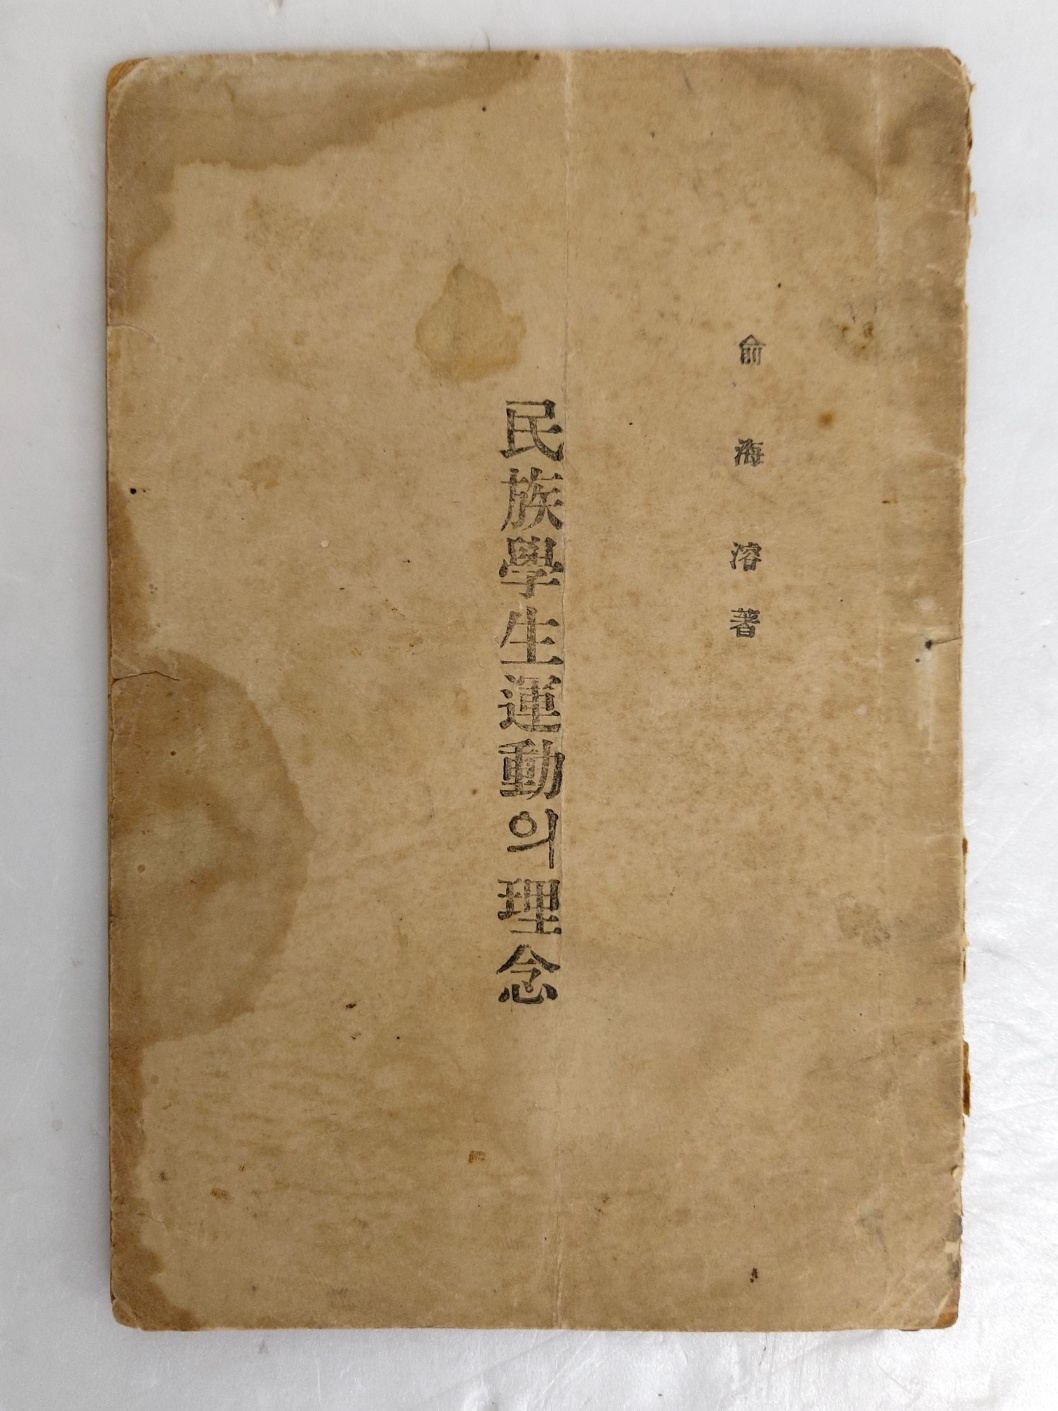 俞海溶著
民族學生運動의理念